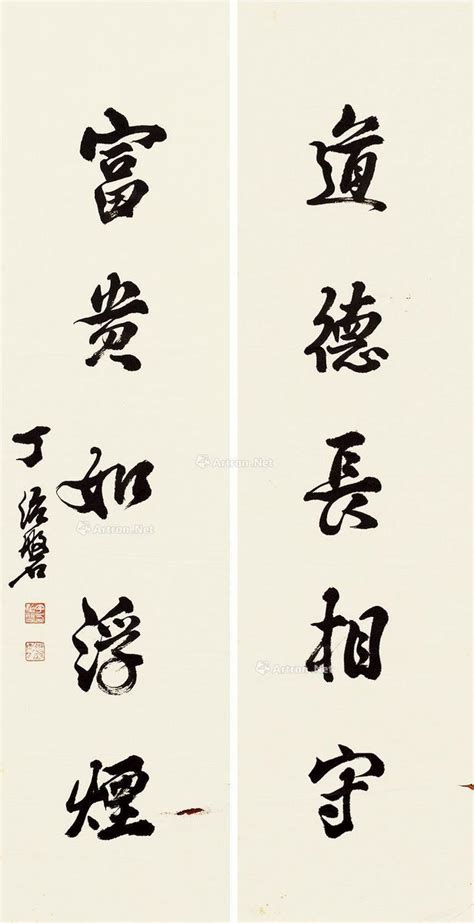 道德長相守
富贵如浮煙
丁治磐
Artron.Net
Artron.Net
Artron.Net
Artron.Net